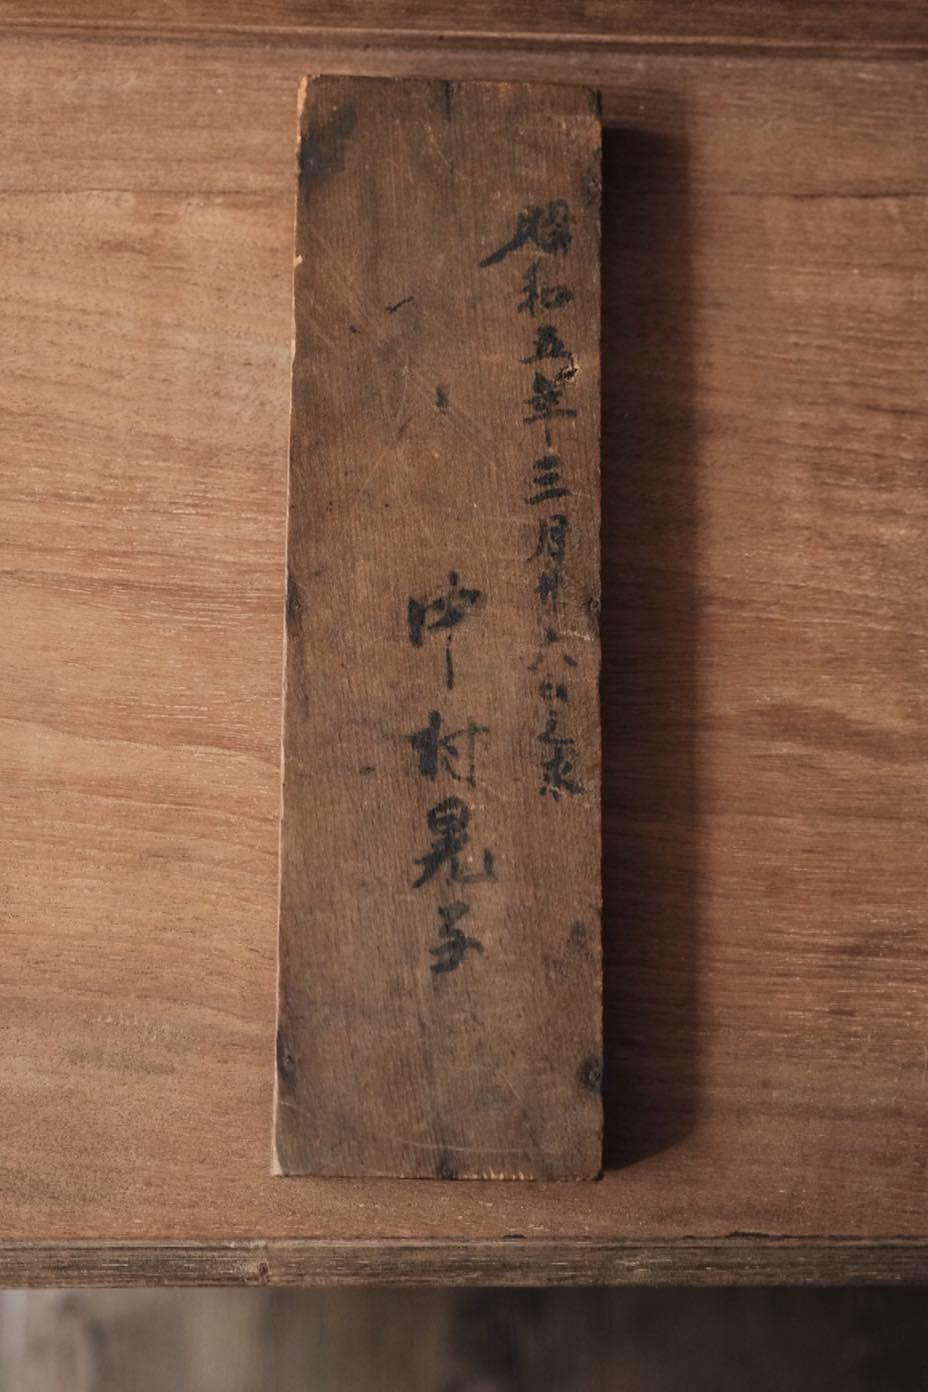 昭和五年三月廾六日之求
中村晃子